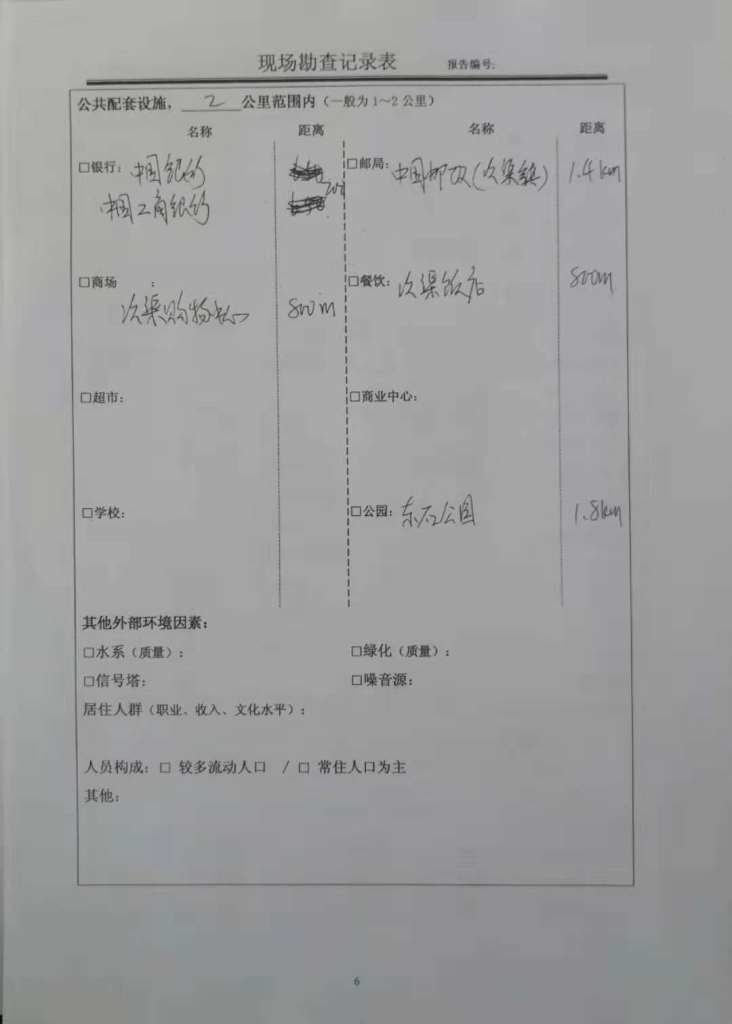 现场勘查记录表 报告编号:
公共配套设施, 2 公里范围内(一般为1~2公里)
名称 距离 名称 距离
□银行: 中国银行 □邮局: 中国邮政(次渠镇) 1.4km
中国工商银行
□商场 : □餐饮: 次渠饭店 800m
次渠购物中心 800m
□超市: □商业中心:
□学校: □公园: 东石公园 1.8km
其他外部环境因素:
□水系(质量): □绿化(质量):
□信号塔: □噪音源:
居住人群(职业、收入、文化水平):
人员构成: □ 较多流动人口 / □ 常住人口为主
其他:
6